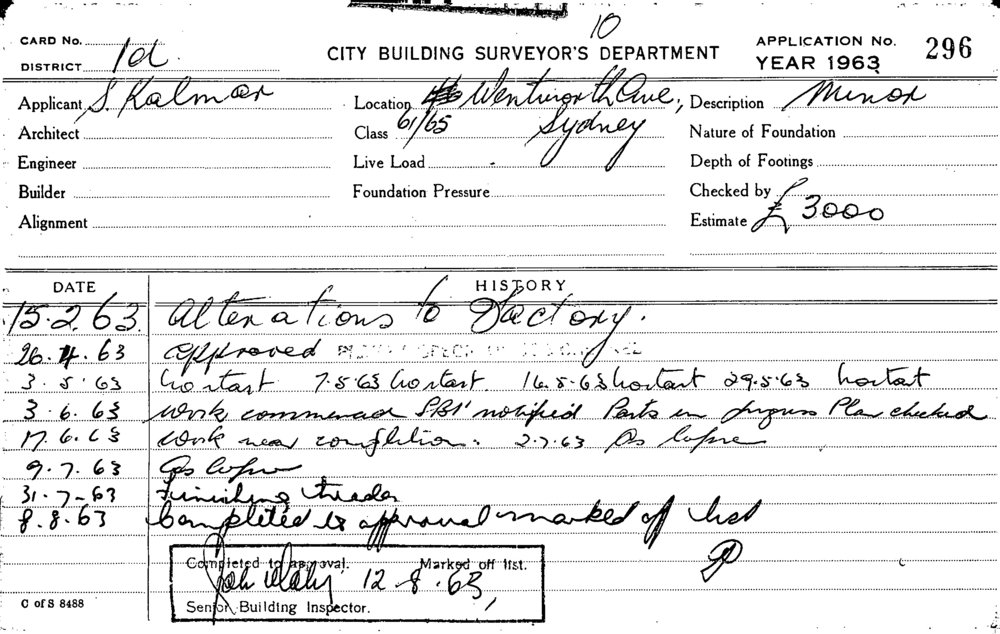 10
CARD No. 1d.
DISTRICT
CITY BUILDING SURVEYOR'S DEPARTMENT
APPLICATION No. 296
YEAR 1963
Applicant S. Kalmar
Location Wentworth Ave,
61/65 Sydney
Description Minor
Architect
Class
Nature of Foundation
Engineer
Live Load
Depth of Footings
Builder
Foundation Pressure
Checked by
Alignment
Estimate £ 3000
DATE HISTORY
15.2.63 Alterations to Factory.
26.4.63 Approved
3.5.63 No start 7.5.63 No start 16.5.63 No start 29.5.63 No start
3.6.63 Work commenced notified Parts in progress Plan checked
17.6.63 Work near completion. 2.7.63 As before
9.7.63 As before
31.7-63 Finishing trades
8.8.63 Completed to approval marked off list
Completed to approval. Marked off list.
12.8.63,
Senior Building Inspector.
C of S 8488